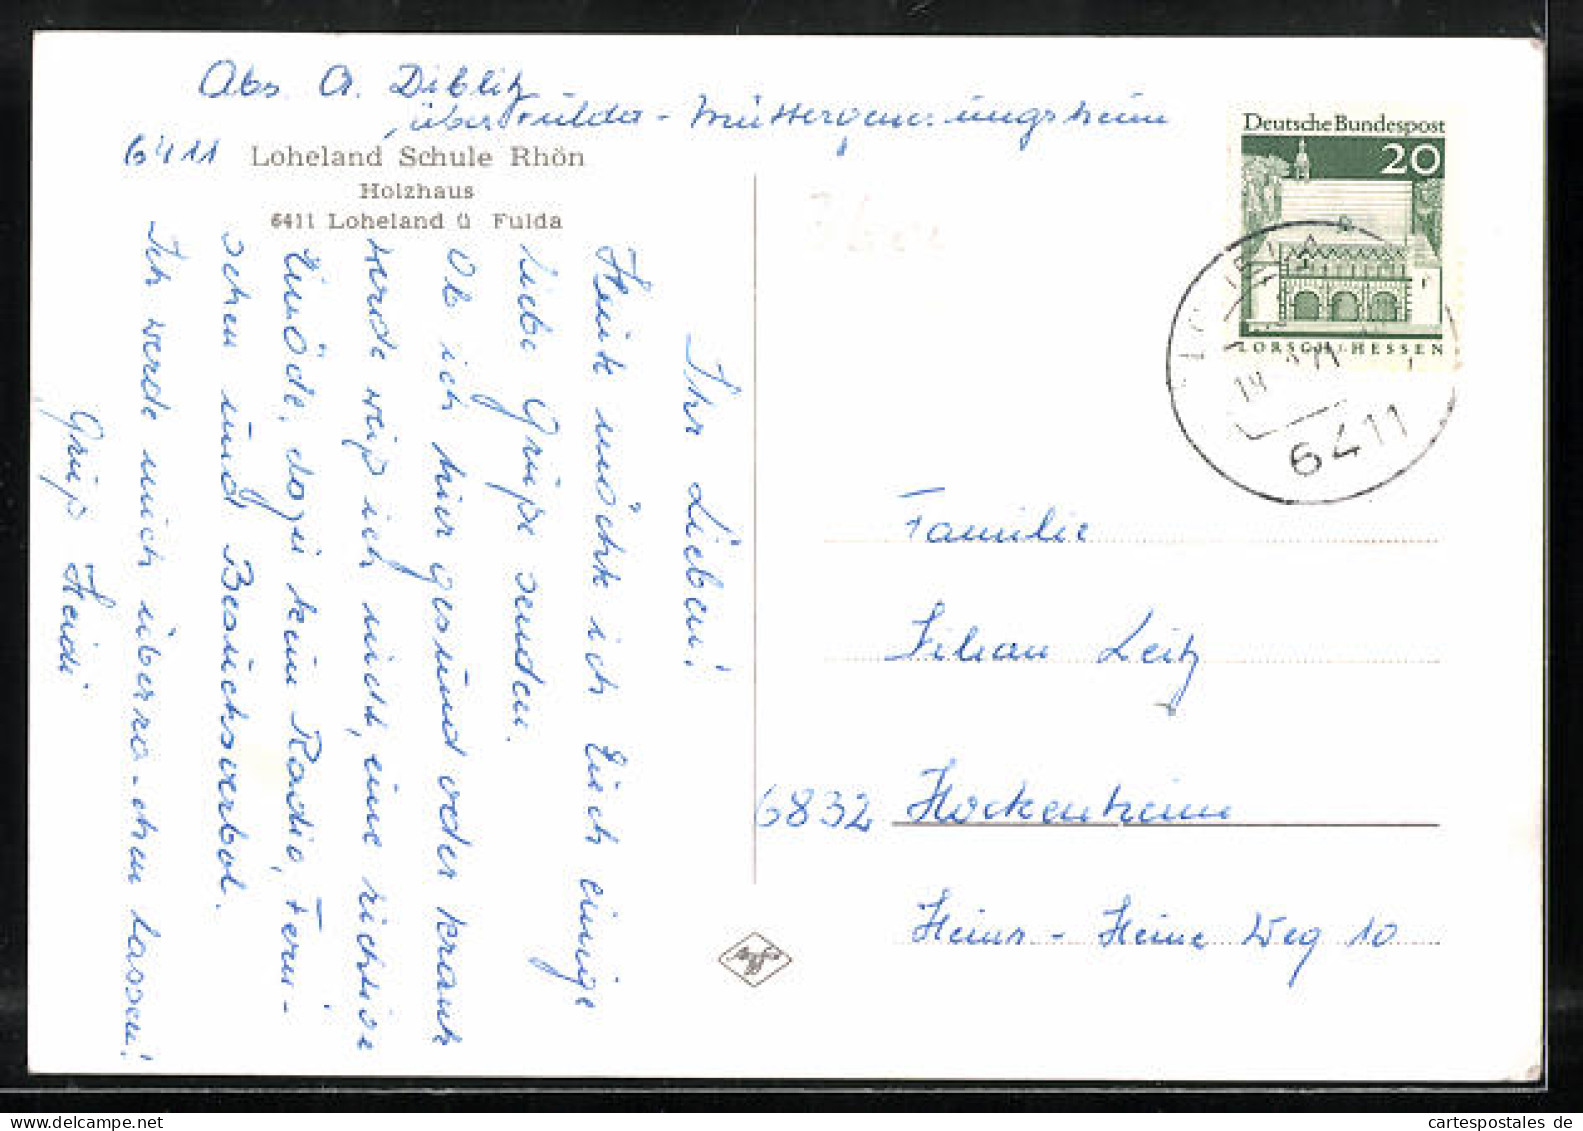 Abs. A. Diblitz
über Fulda - Müttergenesungsheim
6411
Loheland Schule Rhön
Holzhaus
6411 Loheland ü Fulda
Ihr Lieben!
Heute möchte ich Euch einige
liebe Grüße senden.
Ob ich hier gesund oder krank
werde weiß ich nicht, eine richtige
Einöde, dazu kein Radio, Fern-
sehen und Besuchsverbot.
Ich werde mich überra-chen lassen!
Gruß Heidi
Deutsche Bundespost
20
LORSCH I. HESSEN
6411
Familie
Leitz
6832 Hockenheim
Heinr - Heine Weg 10
cartespostales de